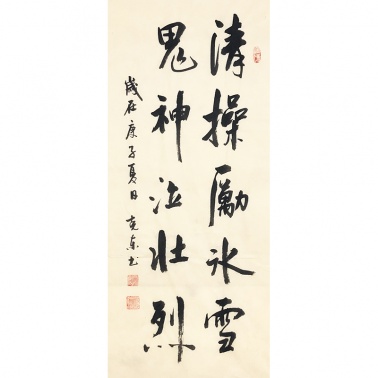 清操厲冰雪
鬼神泣壯烈
歲在庚子夏日 克東书